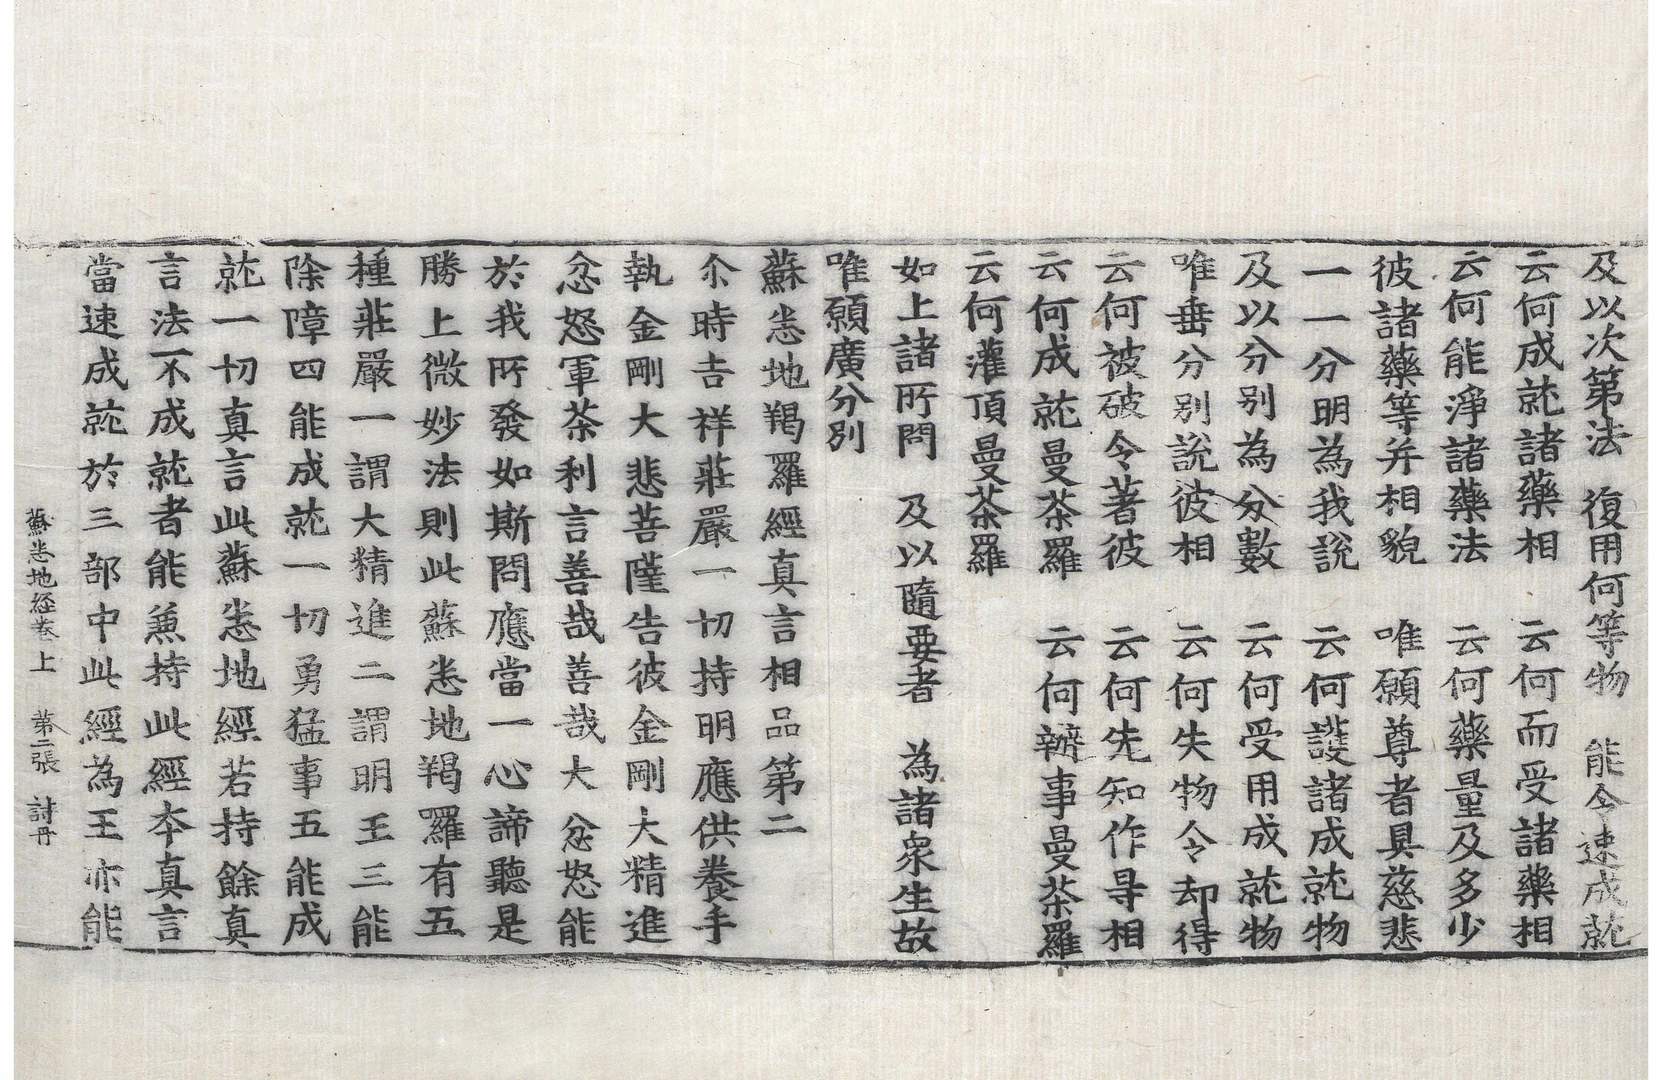 及以次第法　復用何等物　能令速成就
云何成就諸藥相　云何而受諸藥相
云何能淨諸藥法　云何藥量及多少
彼諸藥等并相貌　唯願尊者具慈悲
一一分明為我說　云何護諸成就物
及以分別為分數　云何受用成就物
唯垂分別說彼相　云何失物令却得
云何被破令著彼　云何先知作㝵相
云何成就曼茶羅　云何辦事曼茶羅
云何灌頂曼茶羅
如上諸所問　及以隨要者　為諸衆生故
唯願廣分別
蘇悉地羯羅經真言相品第二
尒時吉祥莊嚴一切持明應供養手
執金剛大悲菩薩告彼金剛大精進
忿怒軍茶利言善哉善哉大忿怒能
於我所發如斯問應當一心諦聽是
勝上微妙法則此蘇悉地羯羅有五
種莊嚴一謂大精進二謂明王三能
除障四能成就一切勇猛事五能成
就一切真言此蘇悉地經若持餘真
言法不成就者能兼持此經夲真言
當速成就於三部中此經為王亦能
蘇悉地経卷上　第二張　詩丹